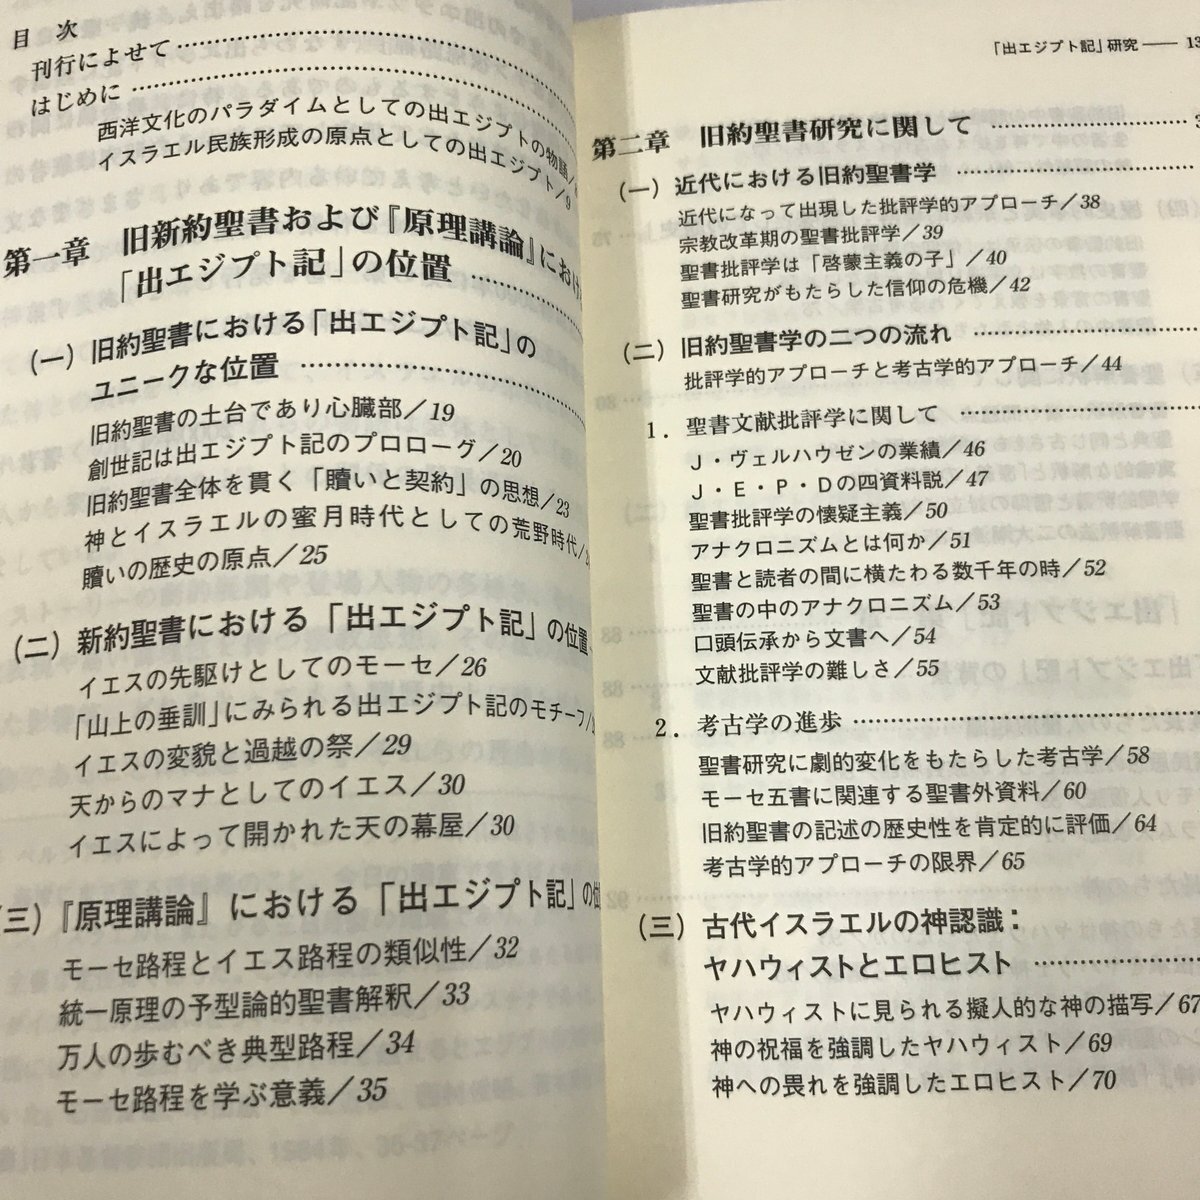 目 次
刊行によせて………………………
はじめに………………………
西洋文化のパラダイムとしての出エジプトの物語/
イスラエル民族形成の原点としての出エジプト/9
第一章 旧新約聖書および『原理講論』におけ
「出エジプト記」の位置…………
(一) 旧約聖書における「出エジプト記」の
ユニークな位置………………
旧約聖書の土台であり心臓部/19
創世記は出エジプト記のプロローグ/20
旧約聖書全体を貫く「贖いと契約」の思想/23
神とイスラエルの蜜月時代としての荒野時代/
贖いの歴史の原点/25
(二) 新約聖書における「出エジプト記」の位置
イエスの先駆けとしてのモーセ/26
「山上の垂訓」にみられる出エジプト記のモチーフ/
イエスの変貌と過越の祭/29
天からのマナとしてのイエス/30
イエスによって開かれた天の幕屋/30
(三)『原理講論』における「出エジプト記」の位
モーセ路程とイエス路程の類似性/32
統一原理の予型論的聖書解釈/33
万人の歩むべき典型路程/34
モーセ路程を学ぶ意義/35
「出エジプト記」研究―― 13
第二章 旧約聖書研究に関して ………………3
(一) 近代における旧約聖書学 ………………
近代になって出現した批評学的アプローチ/38
宗教改革期の聖書批評学/39
聖書批評学は「啓蒙主義の子」/40
聖書研究がもたらした信仰の危機/42
(二) 旧約聖書学の二つの流れ ………………
批評学的アプローチと考古学的アプローチ/44
1. 聖書文献批評学に関して ………………
J・ヴェルハウゼンの業績/46
J・E・P・Dの四資料説/47
聖書批評学の懐疑主義/50
アナクロニズムとは何か/51
聖書と読者の間に横たわる数千年の時/52
聖書の中のアナクロニズム/53
口頭伝承から文書へ/54
文献批評学の難しさ/55
2. 考古学の進歩 ………………………
聖書研究に劇的変化をもたらした考古学/58
モーセ五書に関連する聖書外資料/60
旧約聖書の記述の歴史性を肯定的に評価/64
考古学的アプローチの限界/65
(三) 古代イスラエルの神認識:
ヤハウィストとエロヒスト ……………
ヤハウィストに見られる擬人的な神の描写/67
神の祝福を強調したヤハウィスト/69
神への畏れを強調したエロヒスト/70